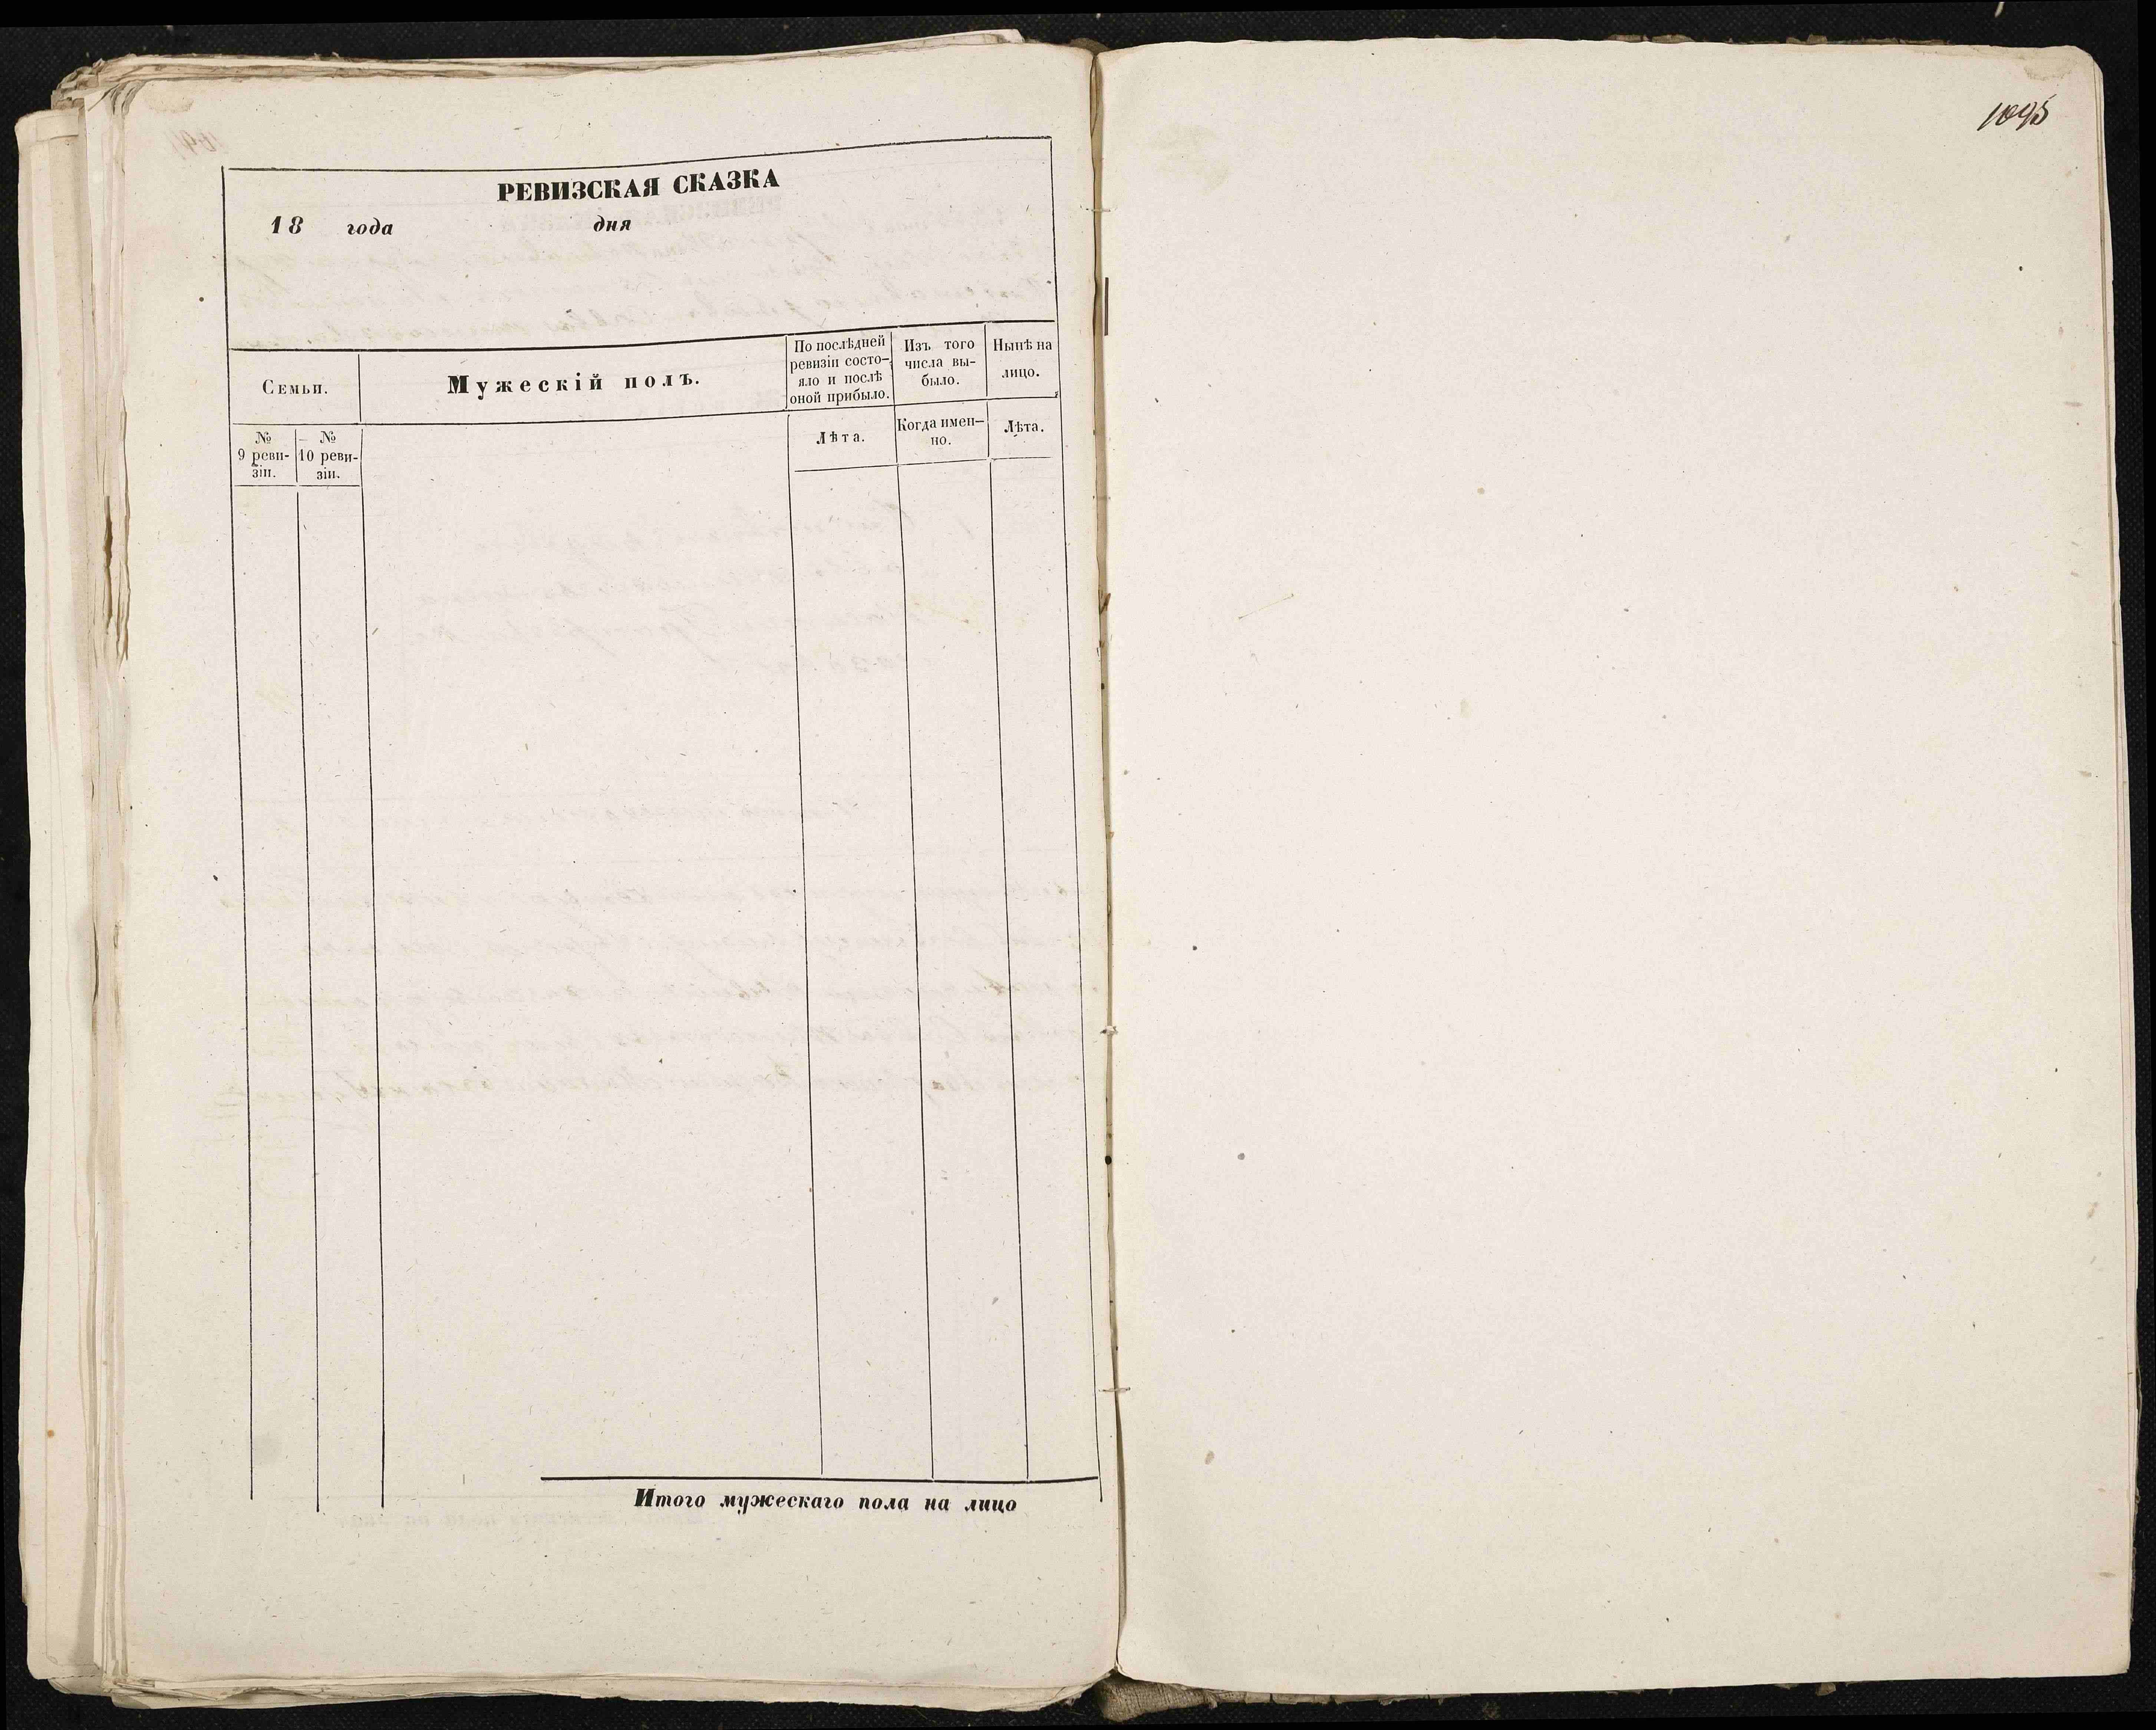 РЕВИЗСКАЯ СКАЗКА
18 года дня
Семьи.
Мужескій полъ.
По послѣдней
ревизіи состо-
яло и послѣ
оной прибыло.
Изъ того
числа вы-
было.
Нынѣ на
лицо.
№
9 реви-
зіи.
№
10 реви-
зіи.
Лѣта.
Когда имен-
но.
Лѣта.
Итого мужескаго пола на лицо
1095